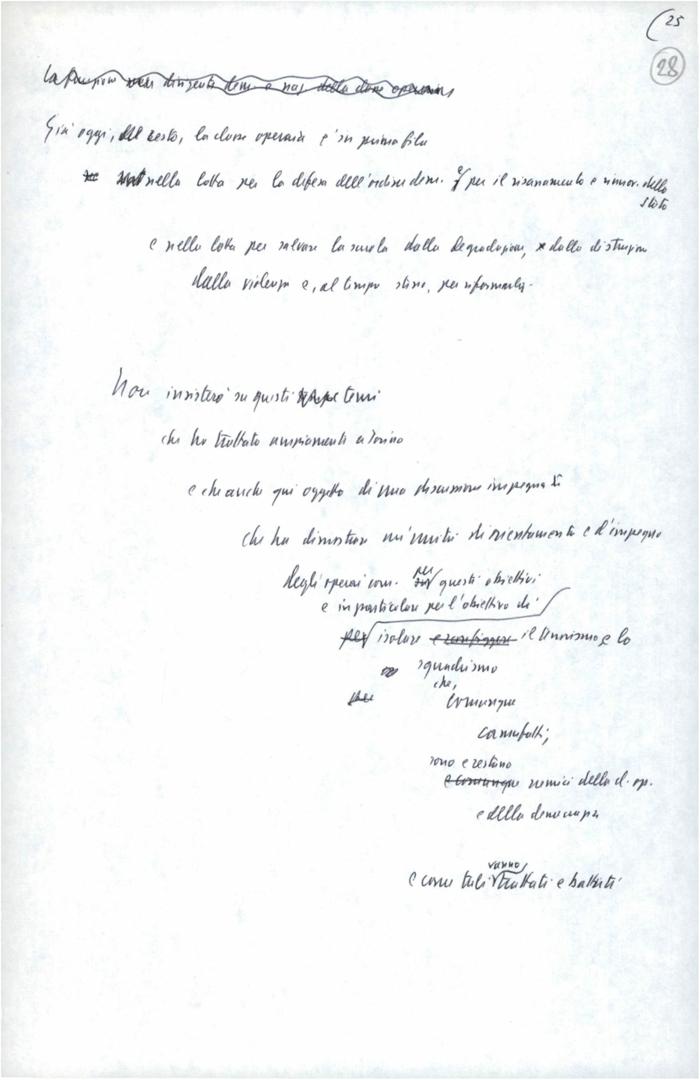 (25
28
La funzione dirigente dem. e naz. della classe operaia
Già oggi, del resto, la classe operaia è in prima fila
nella lotta per la difesa dell'ordine dem. e per il risanamento e rinnov. dello
Stato
e nella lotta per salvare la scuola dalla degradazione, dalla distruzione
dalla violenza e, al tempo stesso, per riformarla.
Non insisterò su questi temi
che ho trattato ampiamente a Torino
e che anche qui oggetto di una discussione impegnata
che ha dimostrato un'unità di orientamento e d'impegno
degli operai com. per questi obiettivi
e in particolare per l'obiettivo di
per isolare e sconfiggere il terrorismo e lo
squadrismo
che,
comunque
camuffati,
sono e restano
e comunque nemici della cl. op.
e della democrazia
vanno
e come tali trattati e battuti